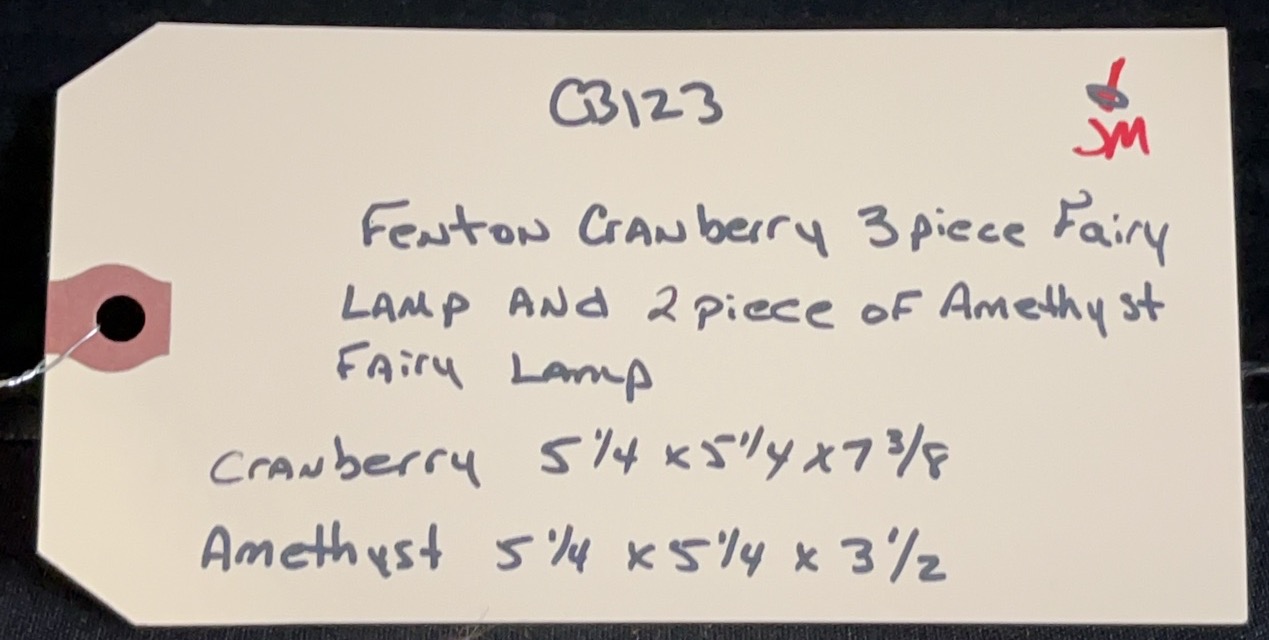 CB123
JM
Fenton Cranberry 3 piece Fairy
Lamp And 2 piece of Amethyst
Fairy Lamp
Cranberry 5 1/4 x 5 1/4 x 7 3/8
Amethyst 5 1/4 x 5 1/4 x 3 1/2